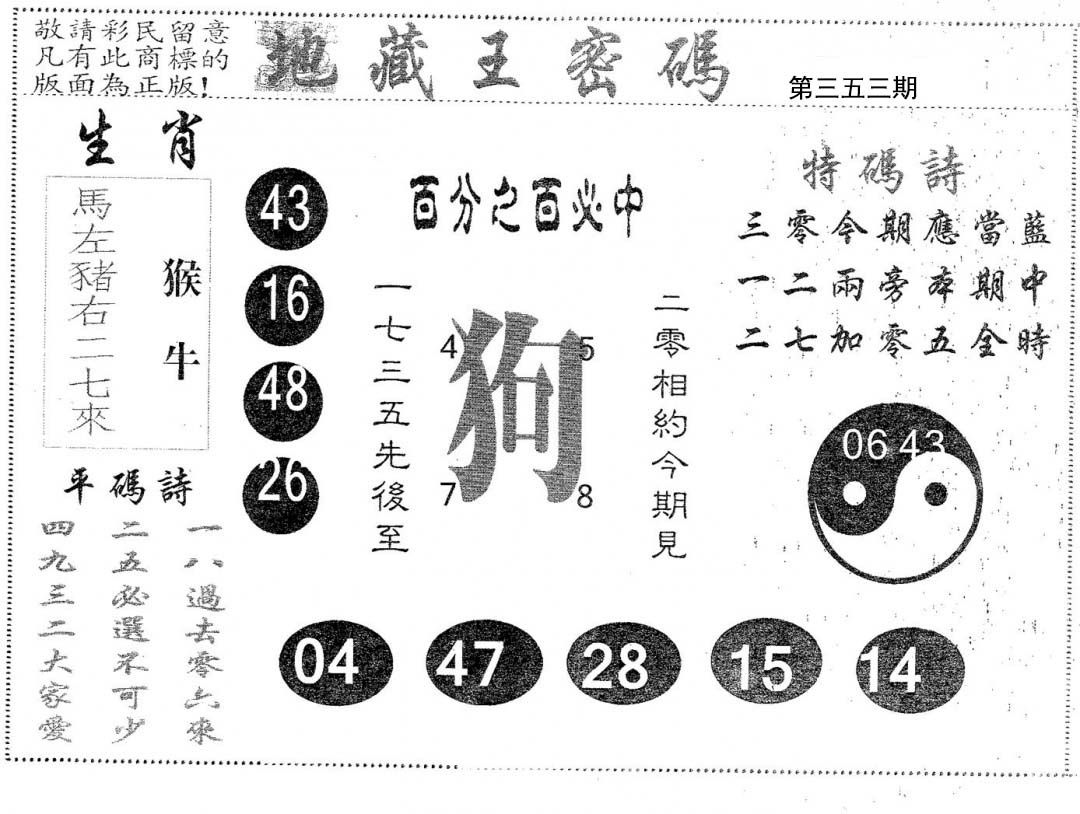 敬請彩民留意
凡有此商標的
版面為正版!
地藏王密碼
第三五三期
生肖
馬左豬右二七來
猴牛
43
16
48
26
百分之百必中
一七三五先後至
狗
4
5
7
8
二零相約今期見
特碼詩
三零今期應當藍
一二兩旁本期中
二七加零五全時
06 43
平碼詩
一八過去零六來
二五必選不可少
四九三二大家愛
04
47
28
15
14